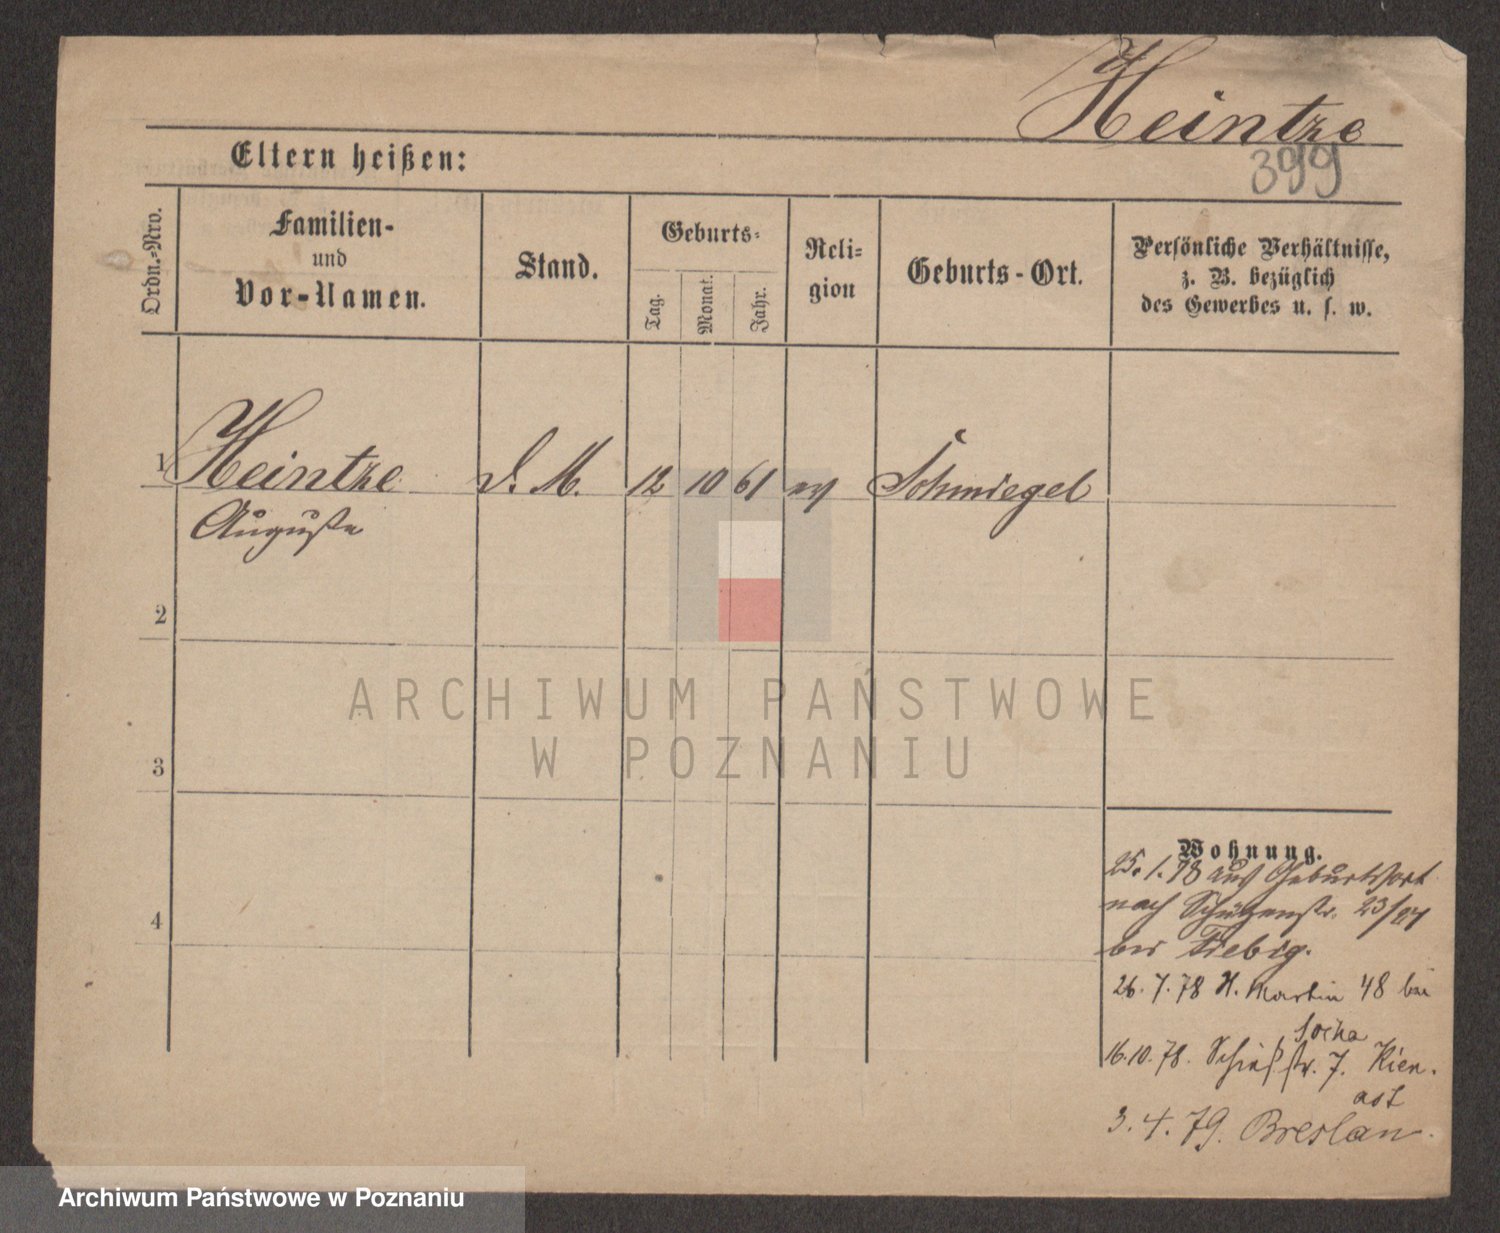 Heintze
399
Eltern heißen:
Ordn.-Nro.
Familien-
und
Vor-Namen.
Stand.
Geburts-
Tag.
Monat.
Jahr.
Reli-
gion
Geburts-Ort.
Persönliche Verhältnisse,
z. B. bezüglich
des Gewerbes u. s. w.
1
Heintze
Auguste
D. M.
12
10
61
ev
Schmiegel
2
3
4
ARCHIWUM PAŃSTWOWE
W POZNANIU
Wohnung.
25.1.78 aus Geburtsort
nach Schützenstr. 23/24
bei Fiebig.
26.7.78 St. Martin 48 bei
Socha
16.10.78. Schießstr. 7. Kien-
ast
3.4.79. Breslau.
Archiwum Państwowe w Poznaniu